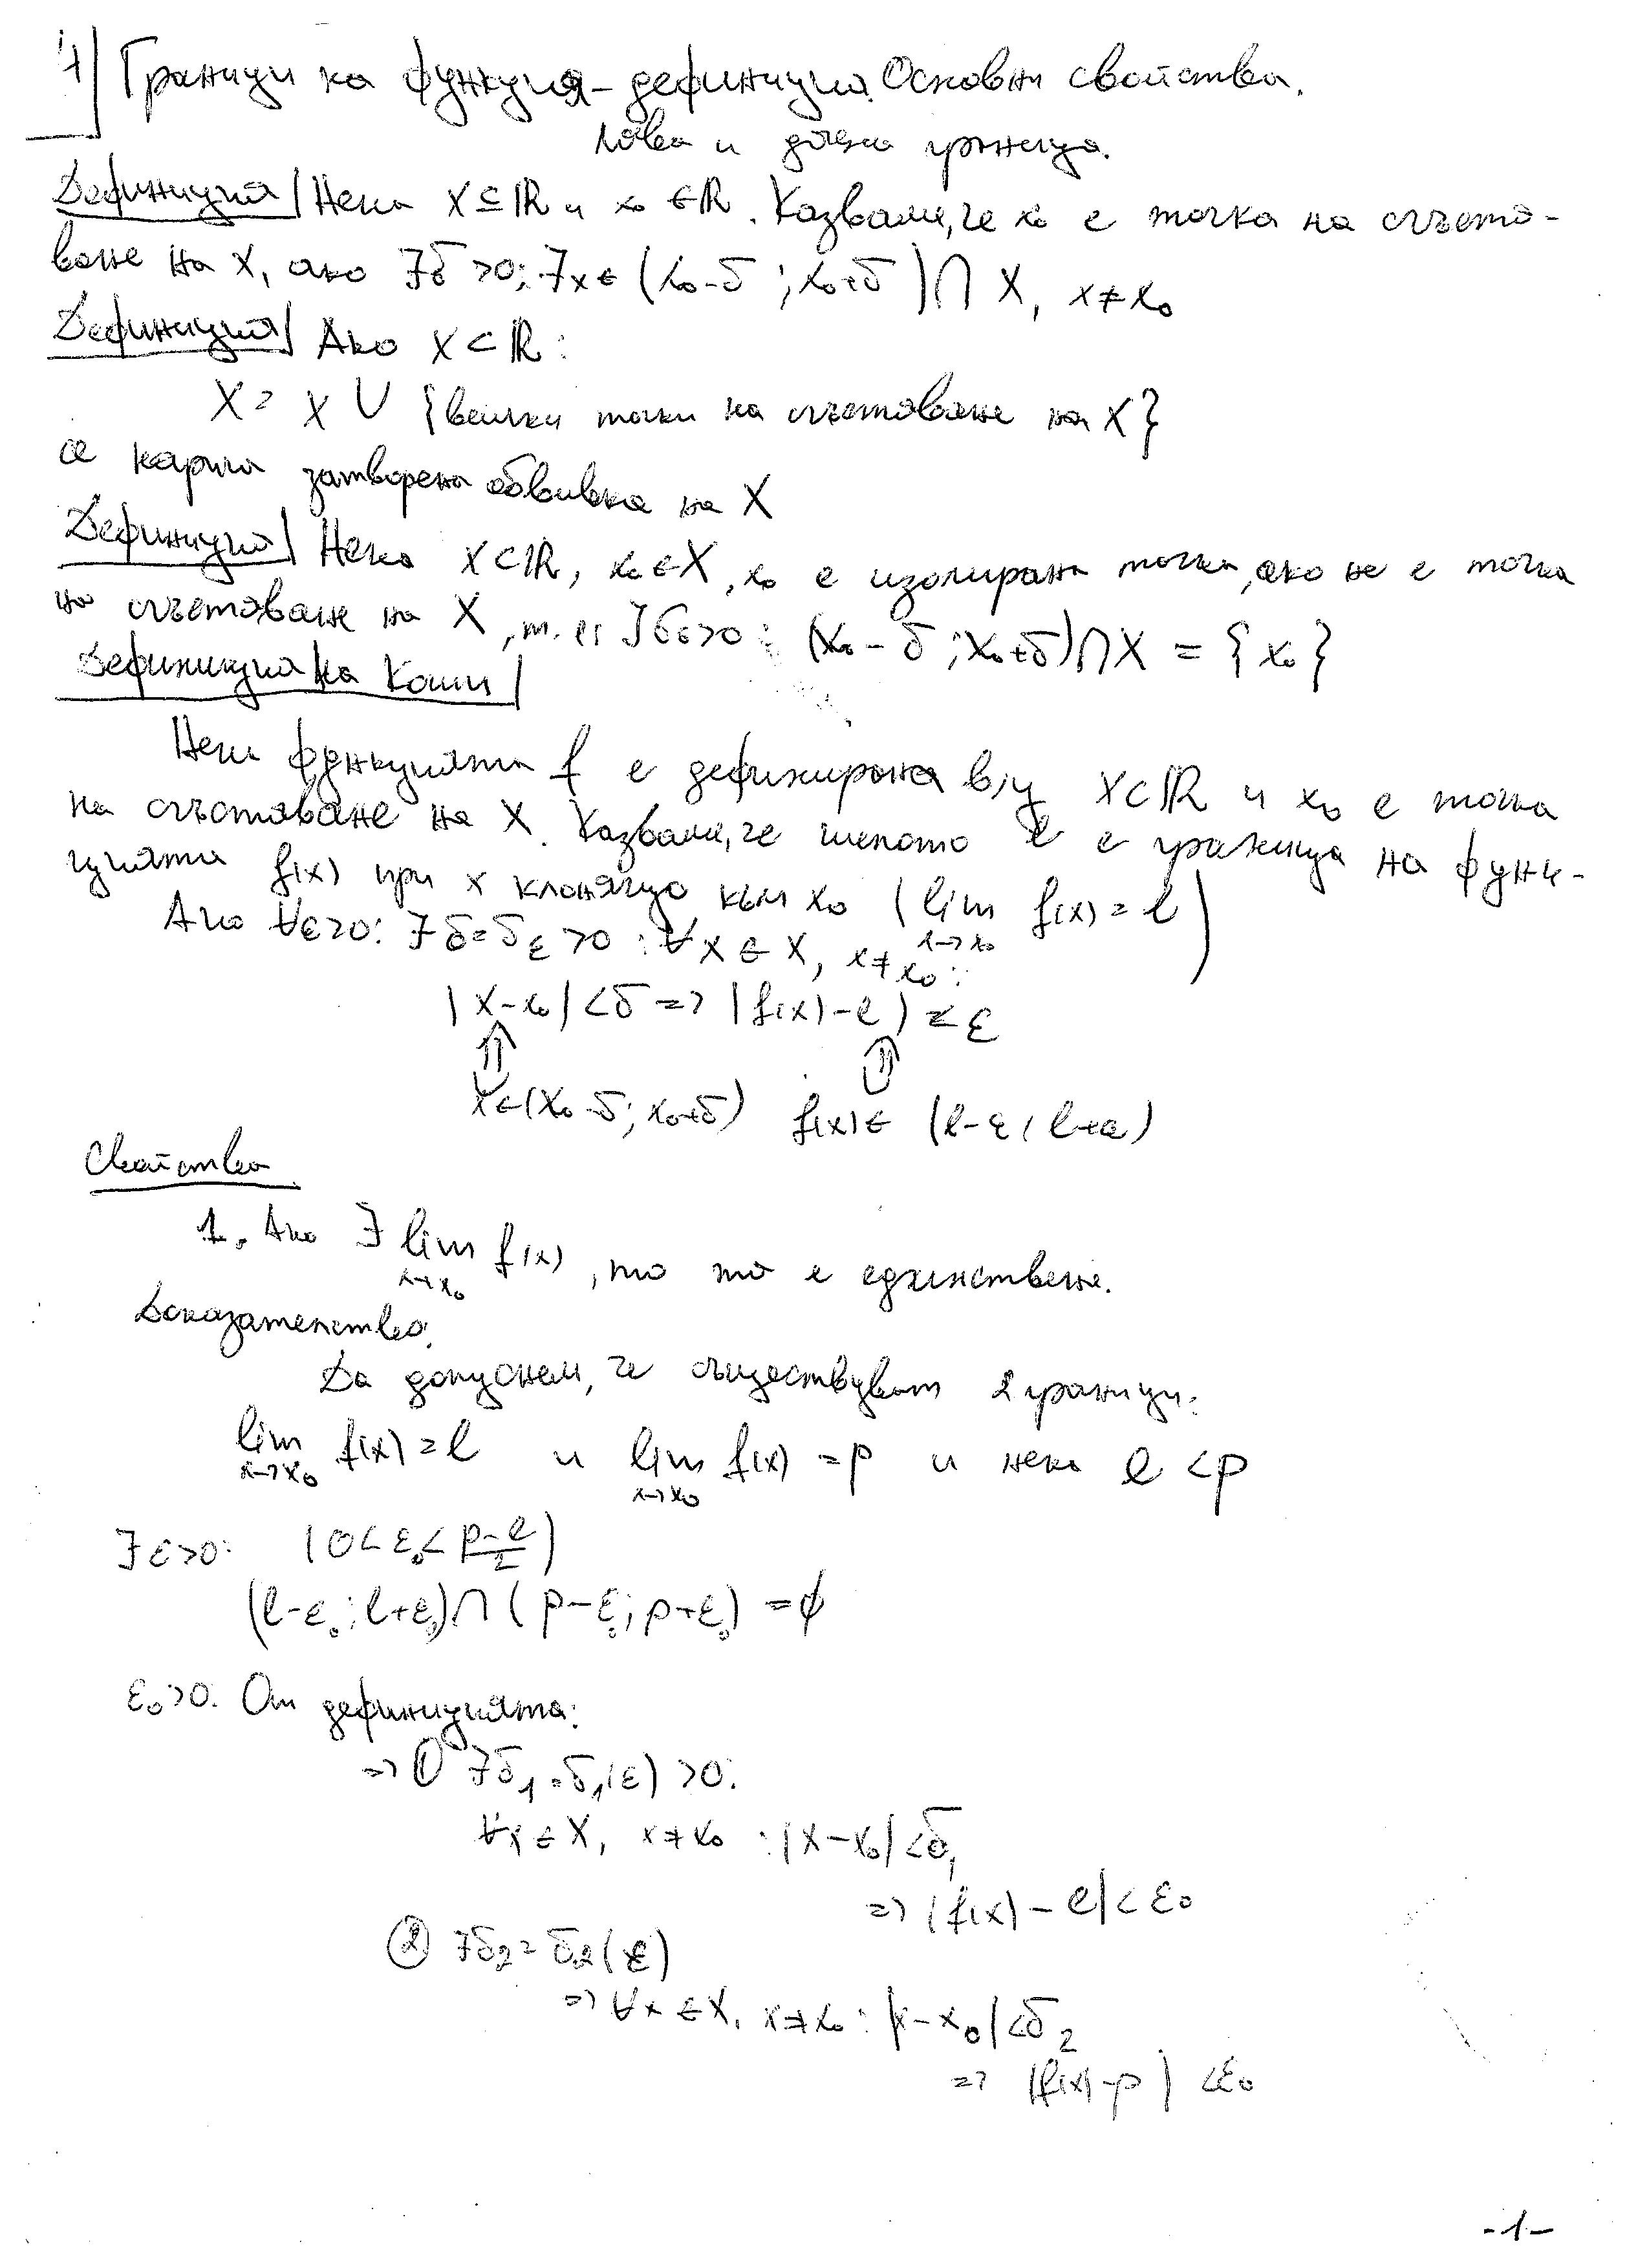 1) Граници на функция – дефиниция. Основни свойства.
Лява и дясна граница.
Дефиниция/ Нека X ⊆ ℝ и x₀ ∈ ℝ. Казваме, че x₀ е точка на сгъстя-
ване на X, ако ∃δ > 0: ∃x ∈ (x₀-δ ; x₀+δ) ∩ X, x ≠ x₀
Дефиниция/ Ако X ⊂ ℝ:
X = X ∪ {всички точки на сгъстяване на X}
се нарича затворена обвивка на X
Дефиниция/ Нека X ⊂ ℝ, x₀ ∈ X, x₀ е изолирана точка, ако не е точка
на сгъстяване на X, т. е. ∃ δ > 0 : (x₀ - δ ; x₀+δ) ∩ X = {x₀}
Дефиниция на Коши/
Нека функцията f е дефинирана в/у X ⊂ ℝ и x₀ е точка
на сгъстяване на X. Казваме, че числото l е граница на функ-
цията f(x) при x клонящо към x₀ (lim f(x) = l)
x→x₀
Ако ∀ε>0: ∃ δ=δ_ε >0 : ∀x ∈ X, x ≠ x₀ :
|x-x₀| < δ => |f(x)-l| < ε
⇑ ⇑
x ∈ (x₀-δ; x₀+δ) f(x) ∈ (l-ε; l+ε)
Свойства
1. Ако ∃ lim f(x), то тя е единствена.
x→x₀
Доказателство:
Да допуснем, че съществуват 2 граници:
lim f(x) = l и lim f(x) = p и нека l < p
x→x₀ x→x₀
∃ ε>0: (0 < ε₀ < p-l/2)
(l-ε₀; l+ε₀) ∩ (p-ε₀; p+ε₀) = ∅
ε₀>0. От дефиницията:
=> ① ∃δ₁=δ₁(ε) >0:
∀x ∈ X, x ≠ x₀ : |x-x₀| < δ₁
=> |f(x) - l| < ε₀
② ∃δ₂ = δ₂(ε)
=> ∀x ∈ X, x ≠ x₀ : |x-x₀| < δ₂
=> |f(x)-p| < ε₀
-1-